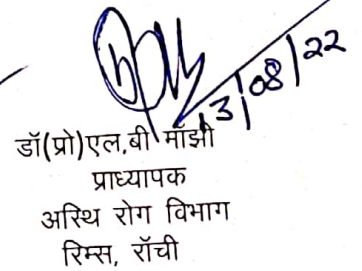 13/08/22
डॉ(प्रो)एल.बी माँझी
प्राध्यापक
अस्थि रोग विभाग
रिम्स, राँची